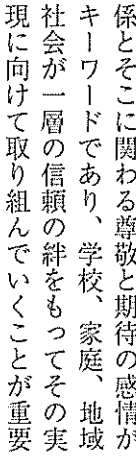 係とそこに関わる尊敬と期待の感情が
キーワードであり、学校、家庭、地域
社会が一層の信頼の絆をもってその実
現に向けて取り組んでいくことが重要